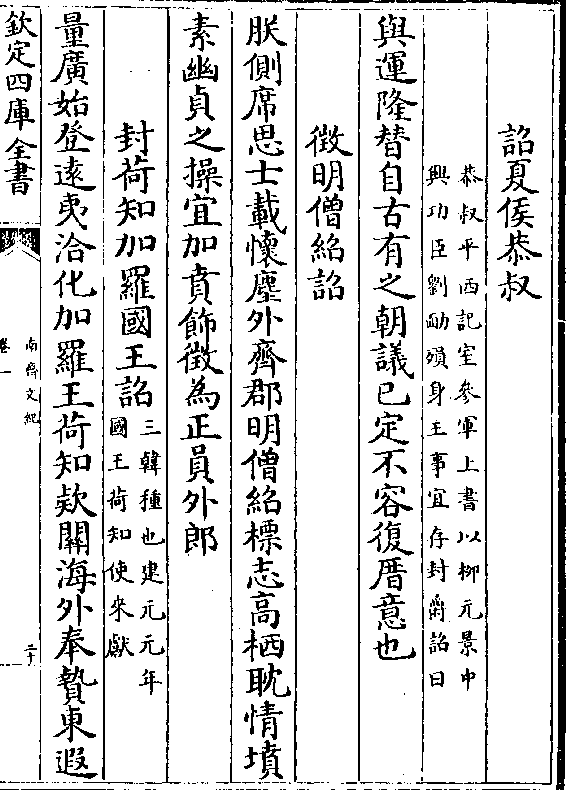 詔夏侯恭叔
恭叔平西記室參軍上書以柳元景中
興功臣劉勔殞身王事宜存封爵詔曰
與運隆替自古有之朝議已定不容復厝意也
徴明僧紹詔
朕側席思士載懷塵外齊郡明僧紹標志高栖耽情墳
素幽貞之操宜加賁飾徴為正員外郎
封荷知加羅國王詔
三韓種也建元元年
國王荷知使來獻
量廣始登遠夷洽化加羅王荷知欵關海外奉贄東遐
欽定四庫全書
南齊文紀
卷一
二十